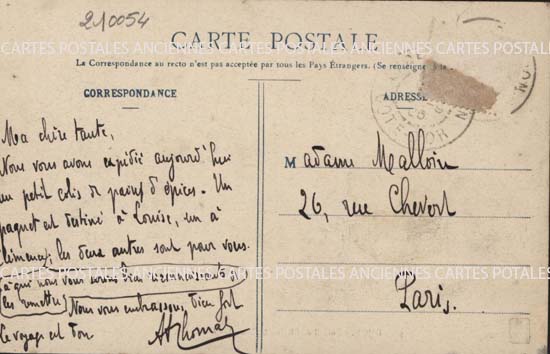 210054
CARTE POSTALE
La Correspondance au recto n'est pas acceptée par tous les Pays Étrangers. (Se renseigner à la
CORRESPONDANCE
ADRESSE
Ma chère tante,
Nous vous avons expédié aujourd'hui
un petit colis de pains d'épices. Un
paquet est destiné à Louise, un à
Clémence, les deux autres sont pour vous.
à qui nous vous serons bien reconnaissants de
les remettre
Nous vous embrassons bien fort
le voyage est bon
Madame Malloin
26, rue Chevert
Paris.
CARTES POSTALES ANCIENNES CARTES POSTALES ANCIENNES CARTES POSTALES
CARTES POSTALES ANCIENNES CARTES POSTALES ANCIENNES CARTES POTALES